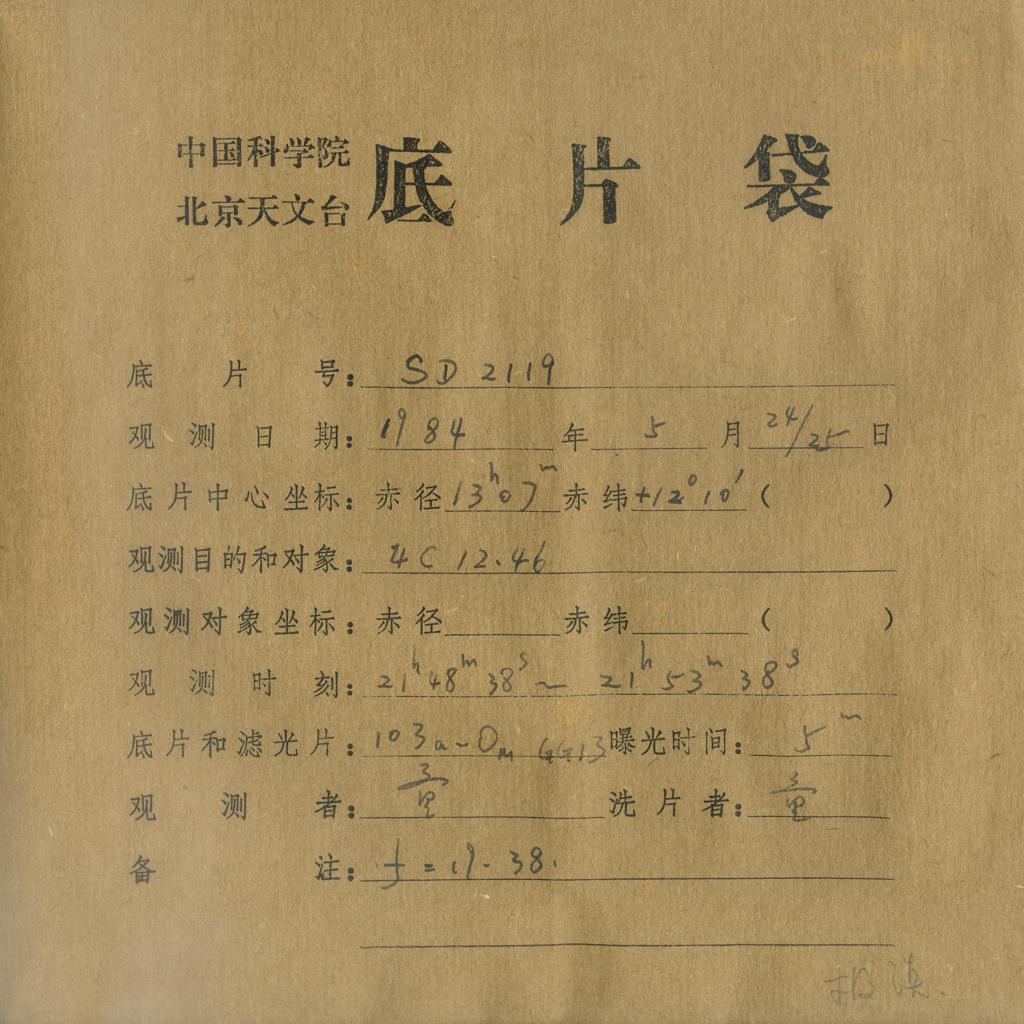 中国科学院
北京天文台
底片袋
底片号：SD 2119
观测日期：1984年5月24/25日
底片中心坐标：赤径13ʰ07ᵐ赤纬+12°10′（ ）
观测目的和对象：4C 12.46
观测对象坐标：赤径 赤纬 （ ）
观测时刻：21ʰ48ᵐ38ˢ～21ʰ53ᵐ38ˢ
底片和滤光片：103a-O GG13 曝光时间：5ᵐ
观测者： 洗片者：
备注：f=19.38.
极淡.